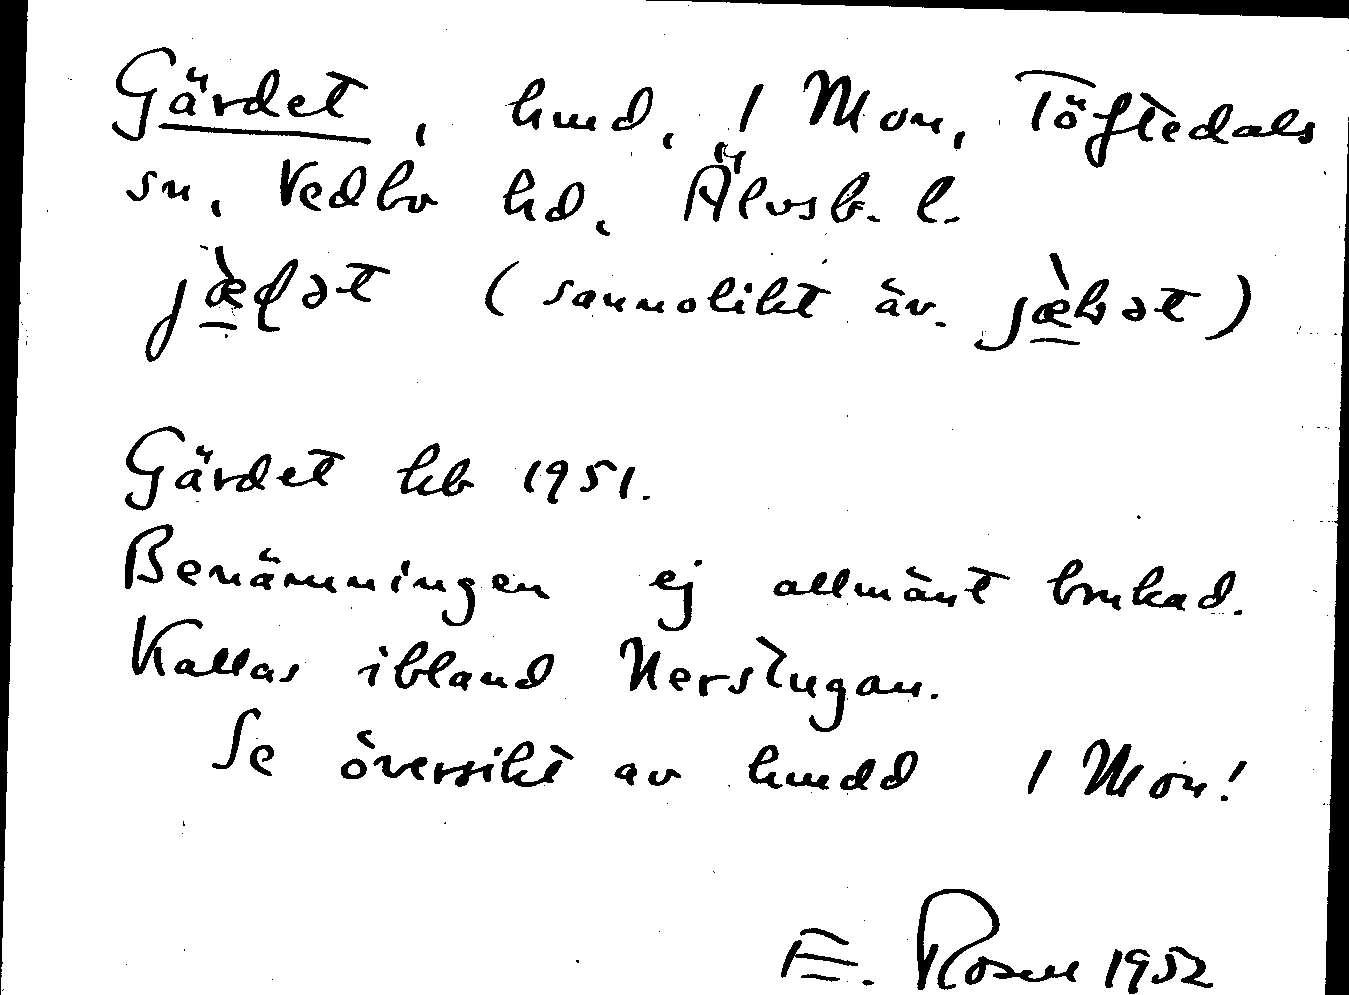 Gärdet, hmd, 1 Mon, Töftedals
sn, Vedbo hd, Älvsb. l.
(sannolikt äv.
Gärdet kb 1951.
Benämningen ej allmänt brukad.
Kallas ibland Nerstugan.
Se översikt av hmdd 1 Mon!
E. Rosell 1952